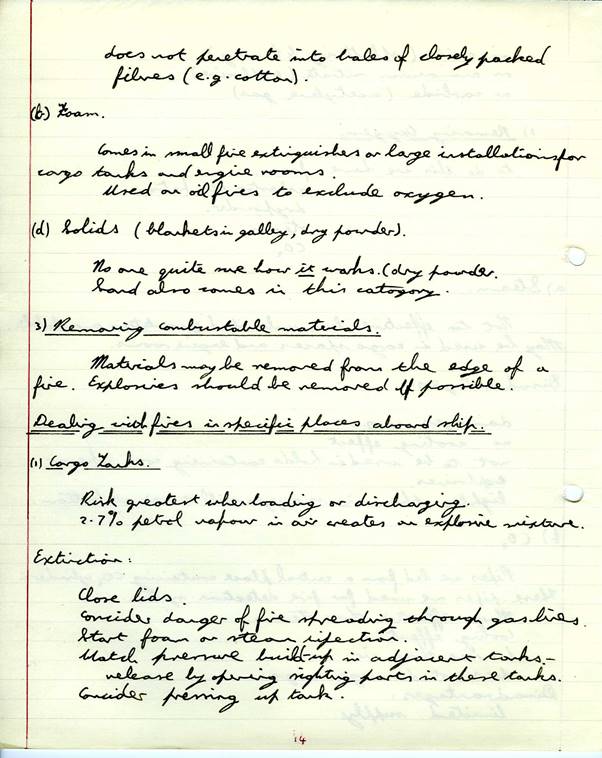 does not penetrate into bales of closely packed
fibres (e.g. cotton).
(c) Foam.
Comes in small fire extinguishers or large installations for
cargo tanks and engine rooms.
Used on oil fires to exclude oxygen.
(d) Solids (blankets in galley, dry powder).
No one quite sure how it works. (dry powder.
Sand also comes in this catogory.
3) Removing combustable materials.
Materials may be removed from the edge of a
fire. Explosives should be removed if possible.
Dealing with fires in specific places aboard ship.
(1) Cargo Tanks.
Risk greatest when loading or discharging.
2.7% petrol vapour in air creates an explosive mixture.
Extinction:
Close lids.
Consider danger of fire spreading through gas lines.
Start foam or steam injection.
Watch pressure build-up in adjacent tanks –
release by opening sighting ports in these tanks.
Consider pressing up tank.
14